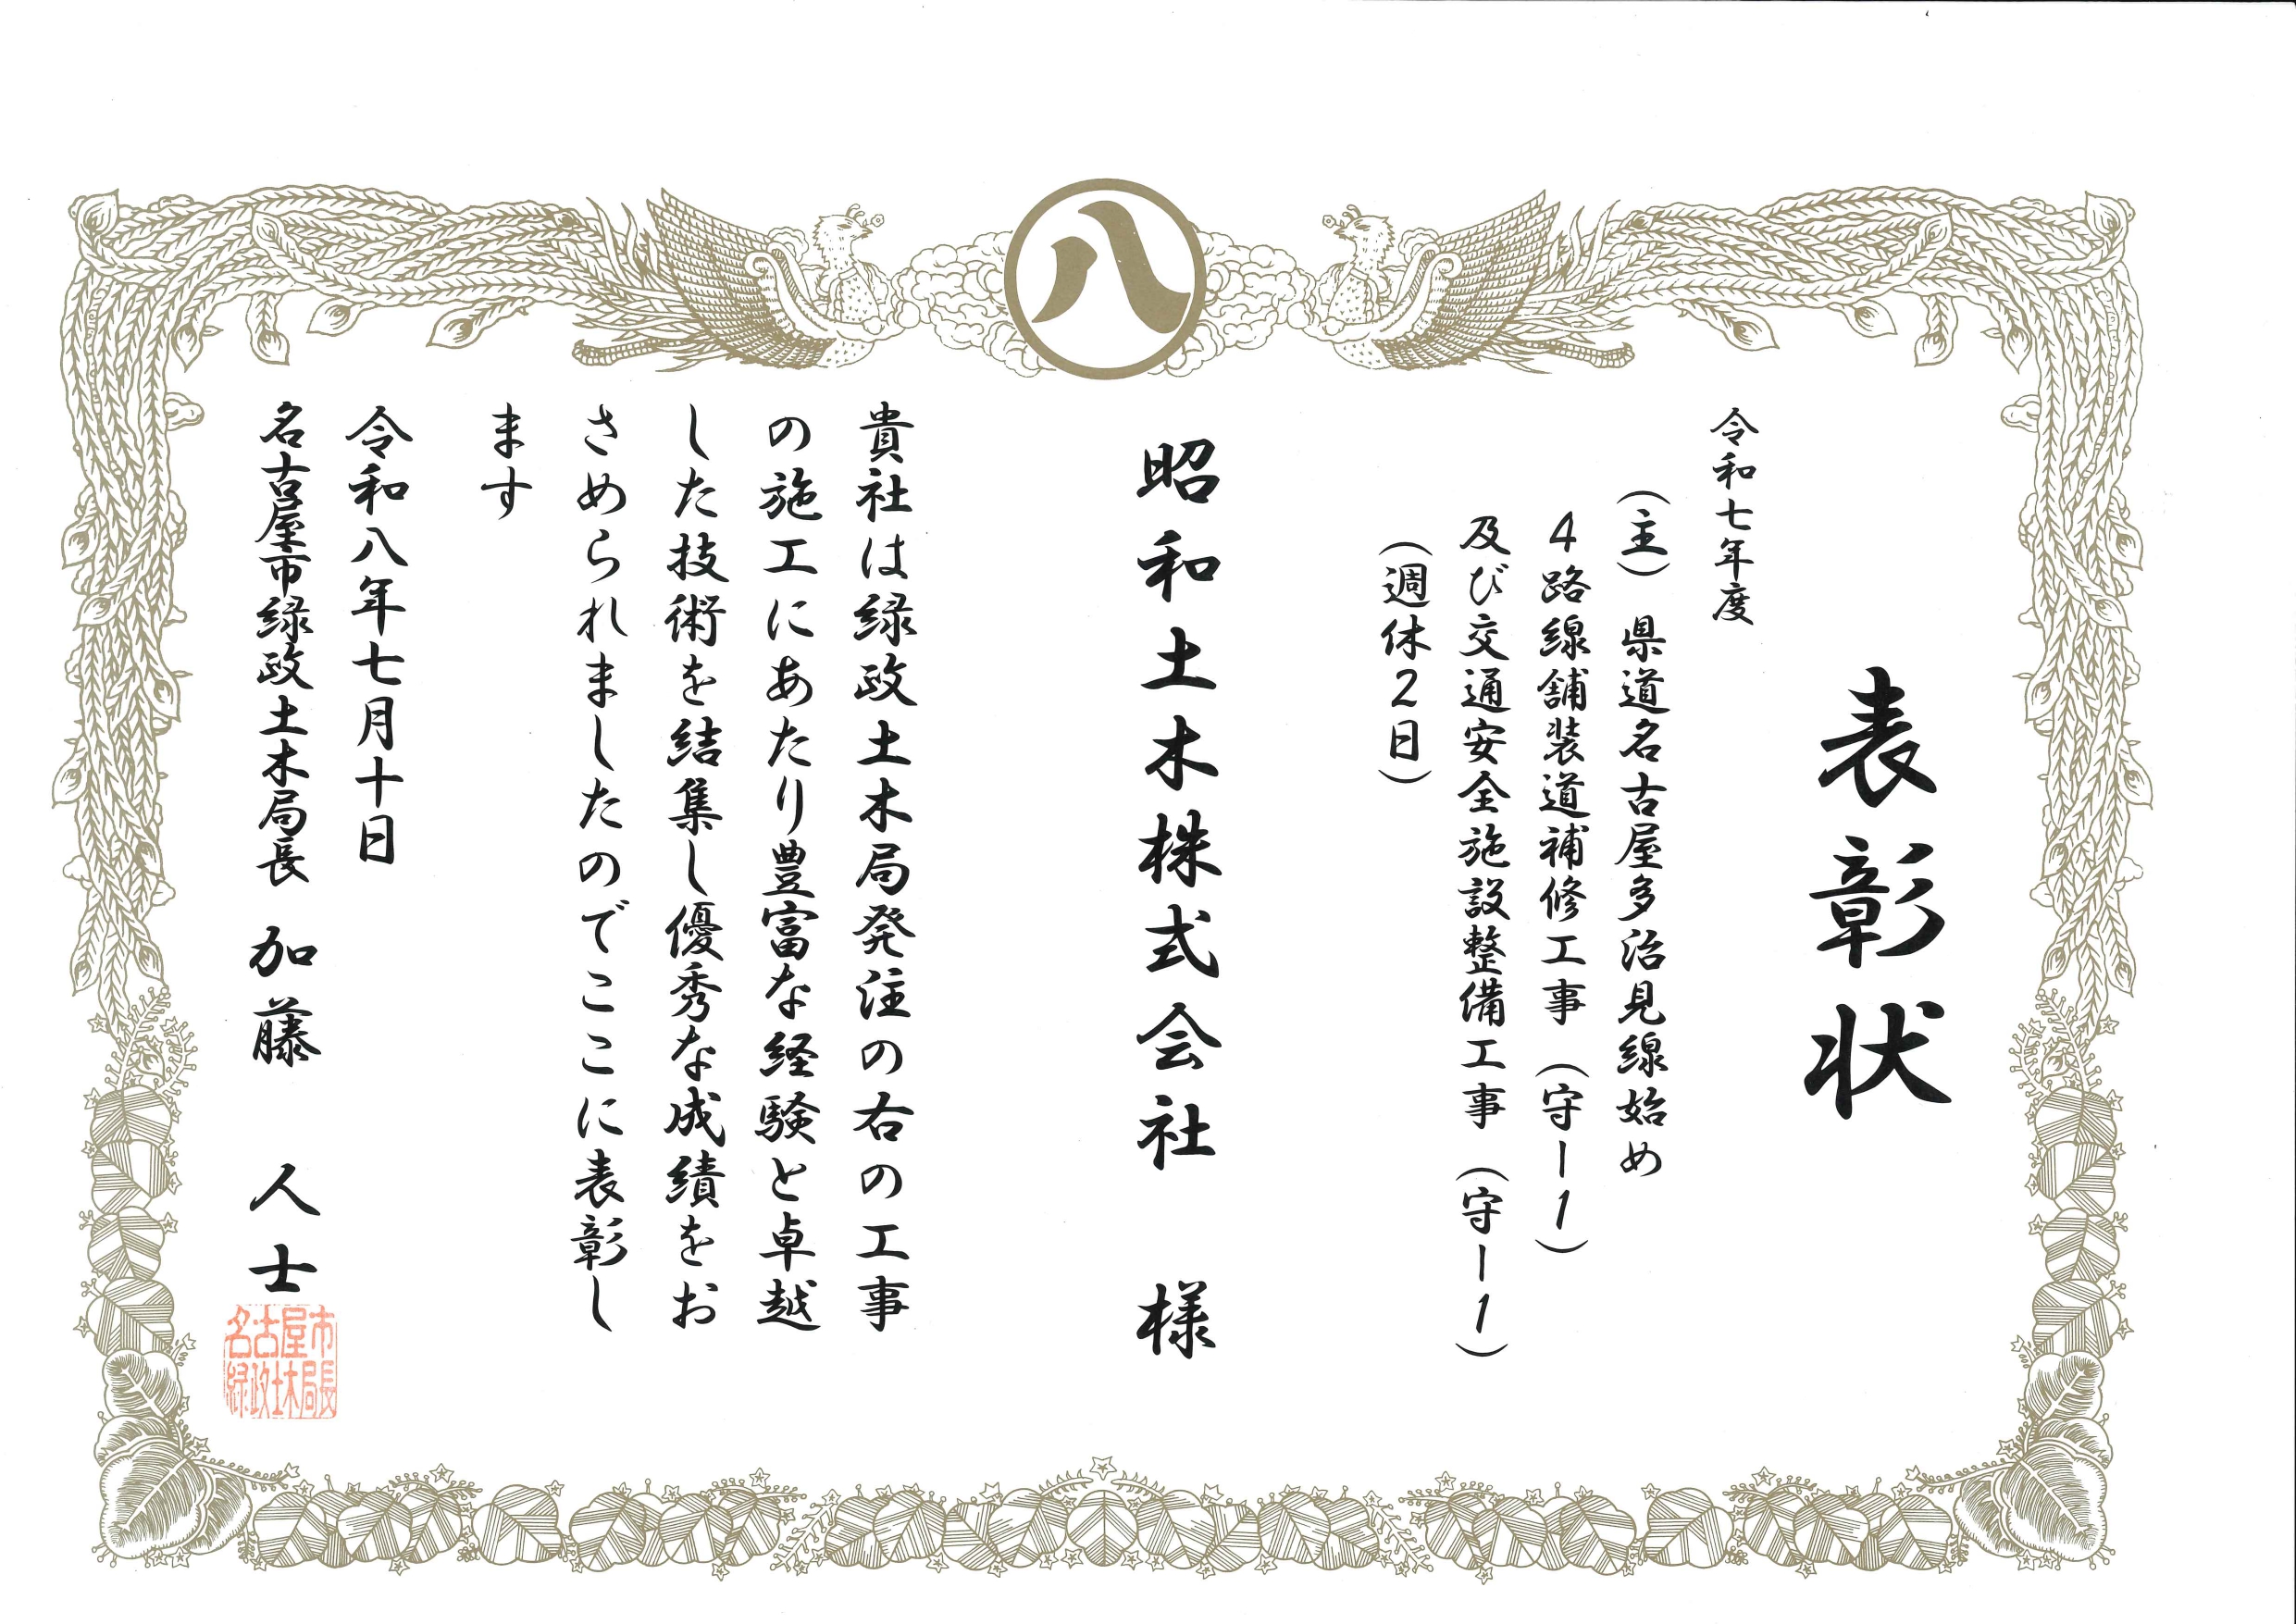 八
表彰状
令和七年度
(主) 県道名古屋多治見線始め
4路線舗装道補修工事(守ー1)
及び交通安全施設整備工事(守ー1)
(週休2日)
昭和土木株式会社 様
貴社は緑政土木局発注の右の工事
の施工にあたり豊富な経験と卓越
した技術を結集し優秀な成績をお
さめられましたのでここに表彰し
ます
令和八年七月十日
名古屋市緑政土木局長 加藤 人士
名古屋市
緑政土木局長